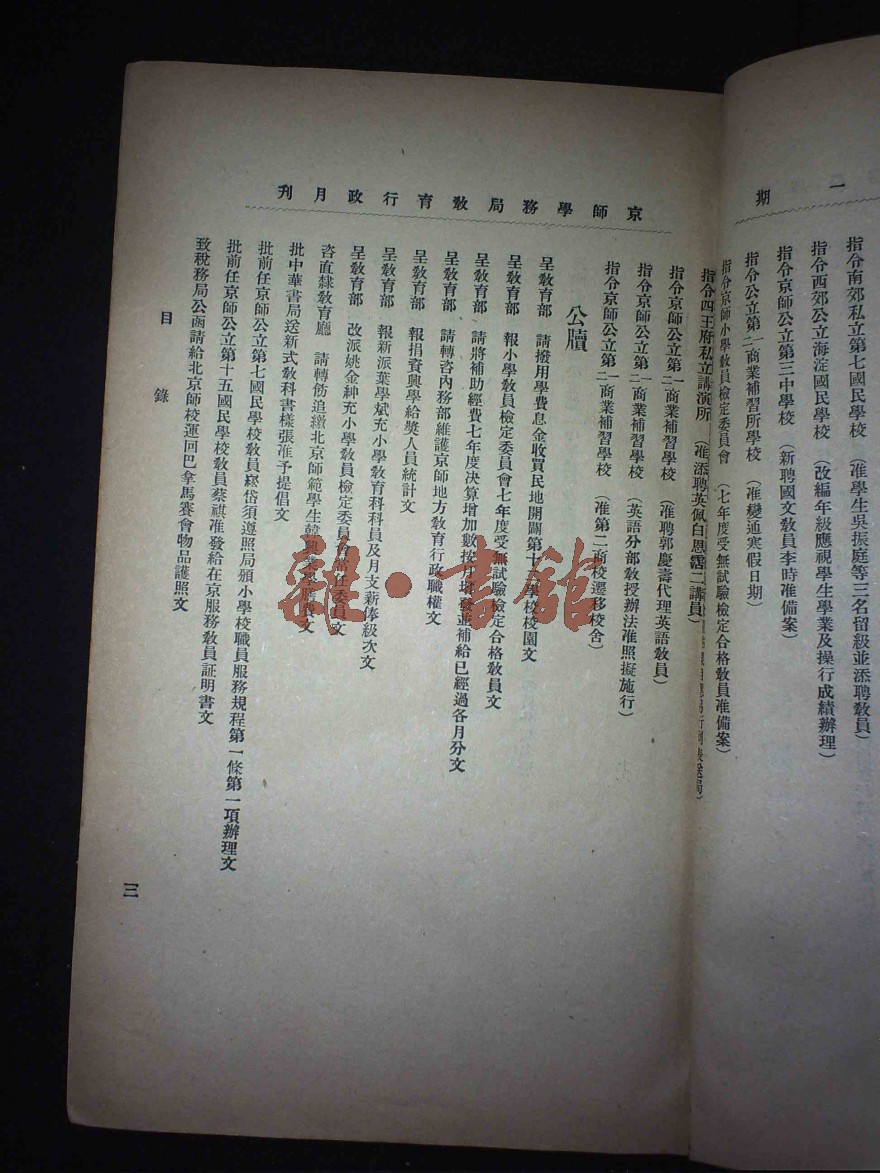 一期
指令南郊私立第七國民學校　（准學生吳振庭等三名留級並添聘教員）
指令西郊公立海淀國民學校　（改編年級應視學生學業及操行成績辦理）
指令京師公立第三中學校　（新聘國文教員李時准備案）
指令公立第一商業補習所學校　（准變通寒假日期）
指令京師小學教員檢定委員會　（七年度受無試驗檢定合格教員准備案）
京師學務局教育行政月刊
指令四王府私立講演所　（准添聘英佩白恩霱二講員）
指令京師公立第一商業補習學校　（准聘郭慶壽代理英語教員）
指令京師公立第一商業補習學校　（英語分部教授辦法准照擬施行）
指令京師公立第二商業補習學校　（准第二商校遷移校舍）
公牘
呈教育部　請撥用學費息金收買民地開闢第十學校校園文
呈教育部　報小學教員檢定委員會七年度受無試驗檢定合格教員文
呈教育部　請將補助經費七年度決算增加數按月增發並補給已經過各月分文
呈教育部　請轉咨內務部維護京師地方教育行政職權文
呈教育部　報捐資興學給獎人員統計文
呈教育部　報新派葉學斌充小學教育科科員及月支薪俸級次文
呈教育部　改派姚金紳充小學教員檢定委員會常任委員文
咨直隸教育廳　請轉飭追繳北京師範學生韓興學膳費文
批中華書局送新式教科書樣張准予提倡文
批前任京師公立第七國民學校教員嵺岱須遵照局頒小學校職員服務規程第一條第一項辦理文
批前任京師公立第十五國民學校教員蔡祺准發給在京服務教員証明書文
致稅務局公函請給北京師校運回巴拿馬賽會物品護照文
目錄
三
雜·書館